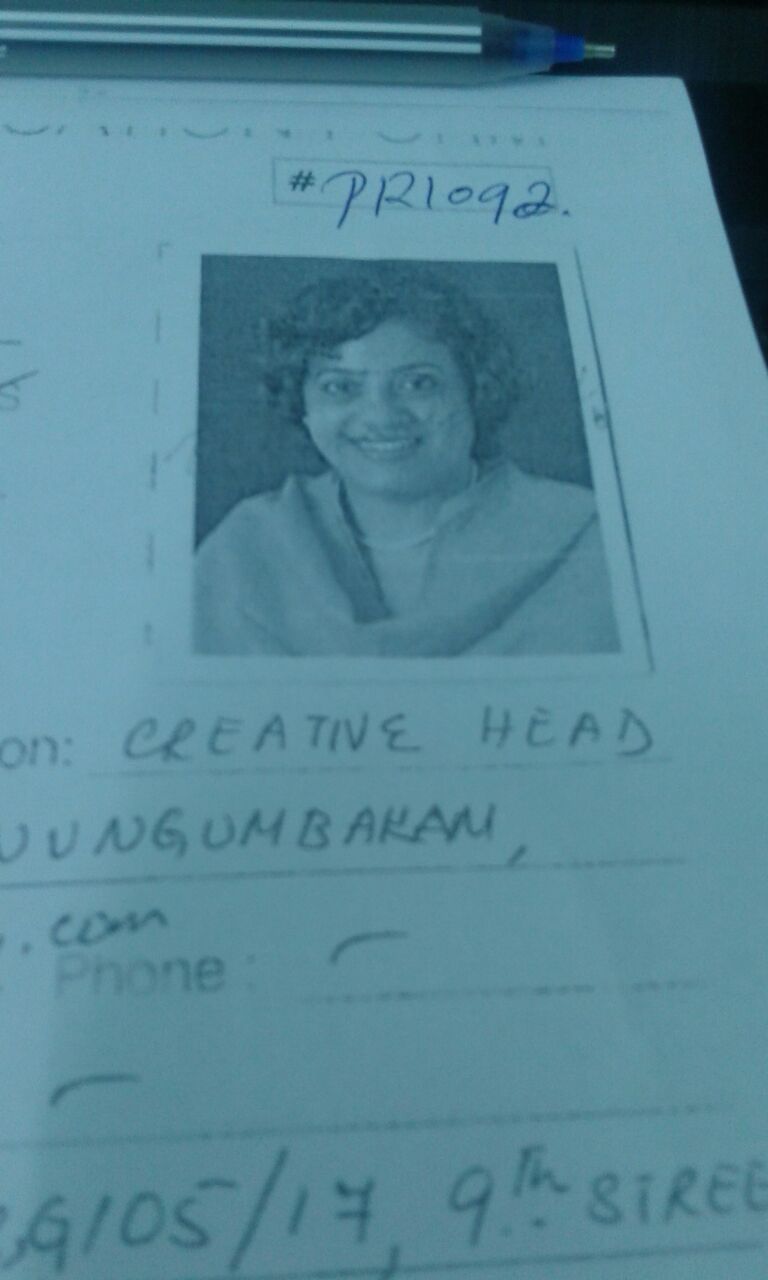 #PR1092.
on: CREATIVE HEAD
NUNGUMBAKAM,
.com
Phone :
G/05/17, 9Th STREE